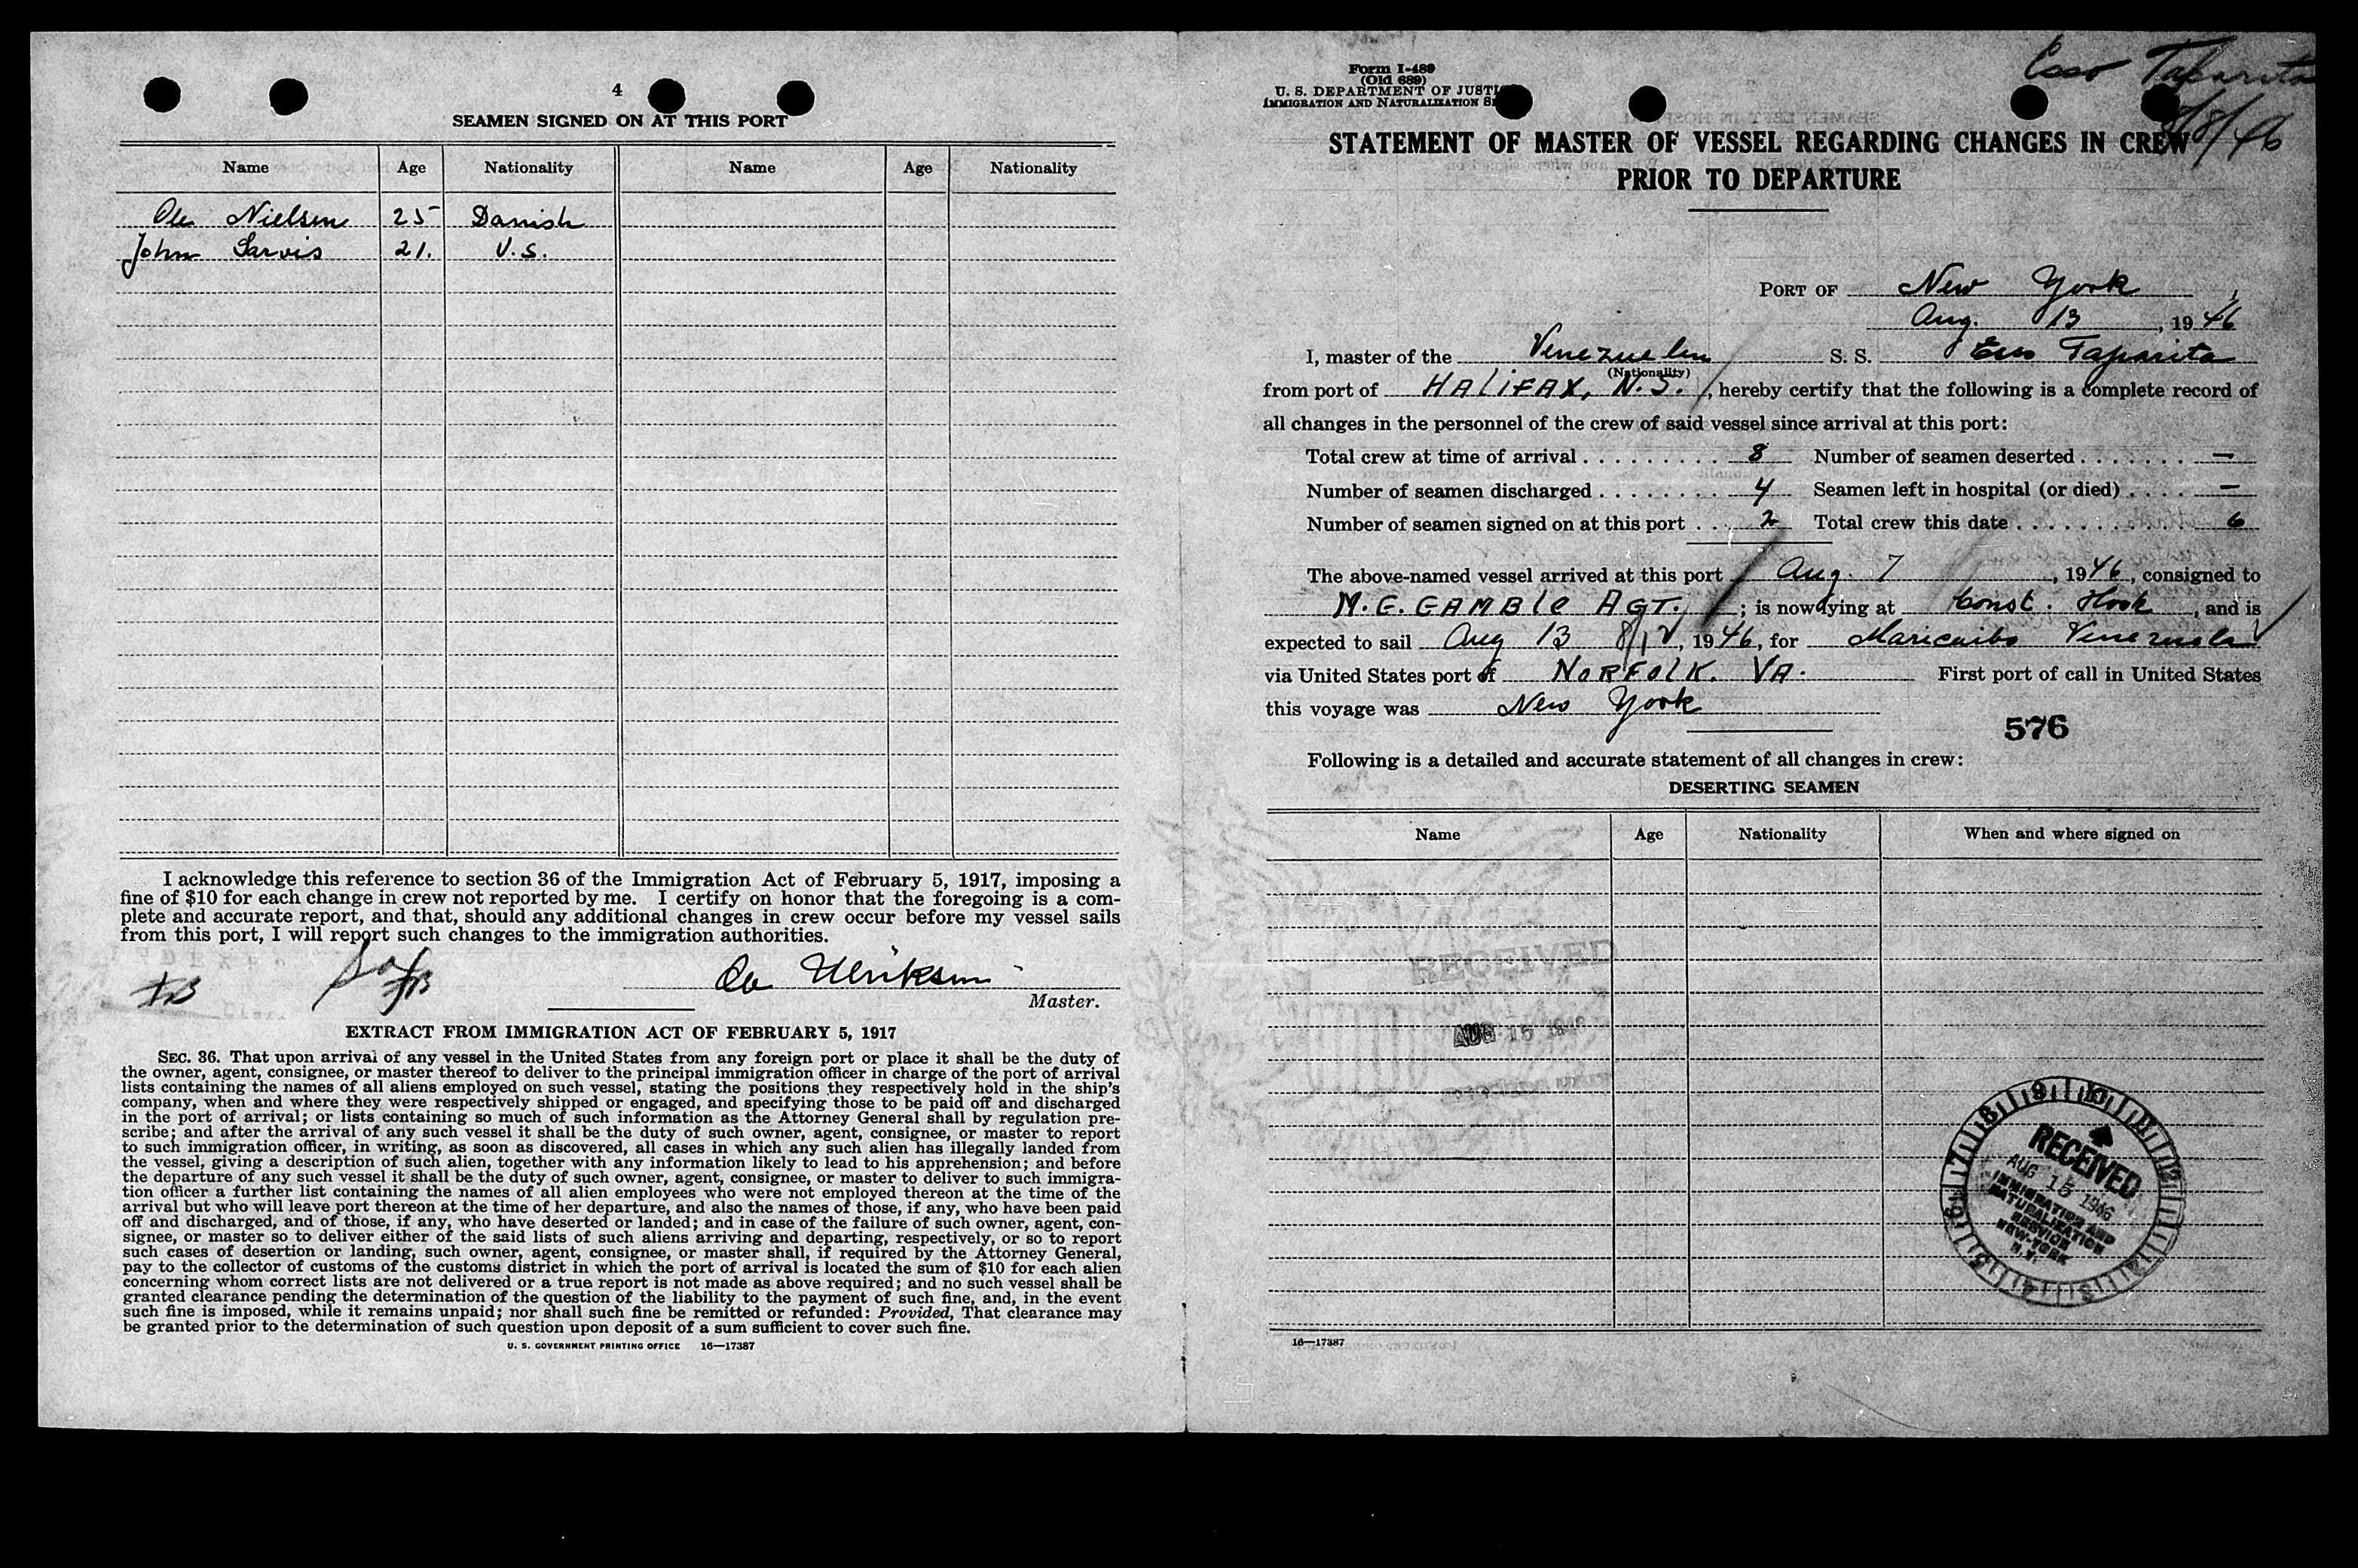 4
SEAMEN SIGNED ON AT THIS PORT
Name Age Nationality Name Age Nationality
Ole Nielsen 25 Danish
John Sarvis 21. U.S.
I acknowledge this reference to section 36 of the Immigration Act of February 5, 1917, imposing a
fine of $10 for each change in crew not reported by me. I certify on honor that the foregoing is a com-
plete and accurate report, and that, should any additional changes in crew occur before my vessel sails
from this port, I will report such changes to the immigration authorities.
Master.
EXTRACT FROM IMMIGRATION ACT OF FEBRUARY 5, 1917
SEC. 36. That upon arrival of any vessel in the United States from any foreign port or place it shall be the duty of
the owner, agent, consignee, or master thereof to deliver to the principal immigration officer in charge of the port of arrival
lists containing the names of all aliens employed on such vessel, stating the positions they respectively hold in the ship's
company, when and where they were respectively shipped or engaged, and specifying those to be paid off and discharged
in the port of arrival; or lists containing so much of such information as the Attorney General shall by regulation pre-
scribe; and after the arrival of any such vessel it shall be the duty of such owner, agent, consignee, or master to report
to such immigration officer, in writing, as soon as discovered, all cases in which any such alien has illegally landed from
the vessel, giving a description of such alien, together with any information likely to lead to his apprehension; and before
the departure of any such vessel it shall be the duty of such owner, agent, consignee, or master to deliver to such immigra-
tion officer a further list containing the names of all alien employees who were not employed thereon at the time of the
arrival but who will leave port thereon at the time of her departure, and also the names of those, if any, who have been paid
off and discharged, and of those, if any, who have deserted or landed; and in case of the failure of such owner, agent, con-
signee, or master so to deliver either of the said lists of such aliens arriving and departing, respectively, or so to report
such cases of desertion or landing, such owner, agent, consignee, or master shall, if required by the Attorney General,
pay to the collector of customs of the customs district in which the port of arrival is located the sum of $10 for each alien
concerning whom correct lists are not delivered or a true report is not made as above required; and no such vessel shall be
granted clearance pending the determination of the question of the liability to the payment of such fine, and, in the event
such fine is imposed, while it remains unpaid; nor shall such fine be remitted or refunded: Provided, That clearance may
be granted prior to the determination of such question upon deposit of a sum sufficient to cover such fine.
U. S. GOVERNMENT PRINTING OFFICE 16—17387
Form I-489
(Old 689)
U. S. DEPARTMENT OF JUSTI
IMMIGRATION AND NATURALIZATION S
Esso Taparita
8/8/46
STATEMENT OF MASTER OF VESSEL REGARDING CHANGES IN CREW
PRIOR TO DEPARTURE
PORT OF New York,
Aug. 13, 1946
I, master of the Venezuelen S. S. Esso Taparita
(Nationality)
from port of HALIFAX, N.S., hereby certify that the following is a complete record of
all changes in the personnel of the crew of said vessel since arrival at this port:
Total crew at time of arrival 8 Number of seamen deserted —
Number of seamen discharged 4 Seamen left in hospital (or died) —
Number of seamen signed on at this port 2 Total crew this date 6
The above-named vessel arrived at this port Aug. 7, 1946, consigned to
M.G. GAMBLE AGT.; is now lying at Const. Hook, and is
expected to sail Aug 13 8/12, 1946, for Maricaibo Venezuela
via United States port of NORFOLK. VA. First port of call in United States
this voyage was New York
576
Following is a detailed and accurate statement of all changes in crew:
DESERTING SEAMEN
Name Age Nationality When and where signed on
RECEIVED
AUG 15
RECEIVED
AUG 15 1946
IMMIGRATION AND
NATURALIZATION
SERVICE
NEW-YORK
N.Y.
16—17387